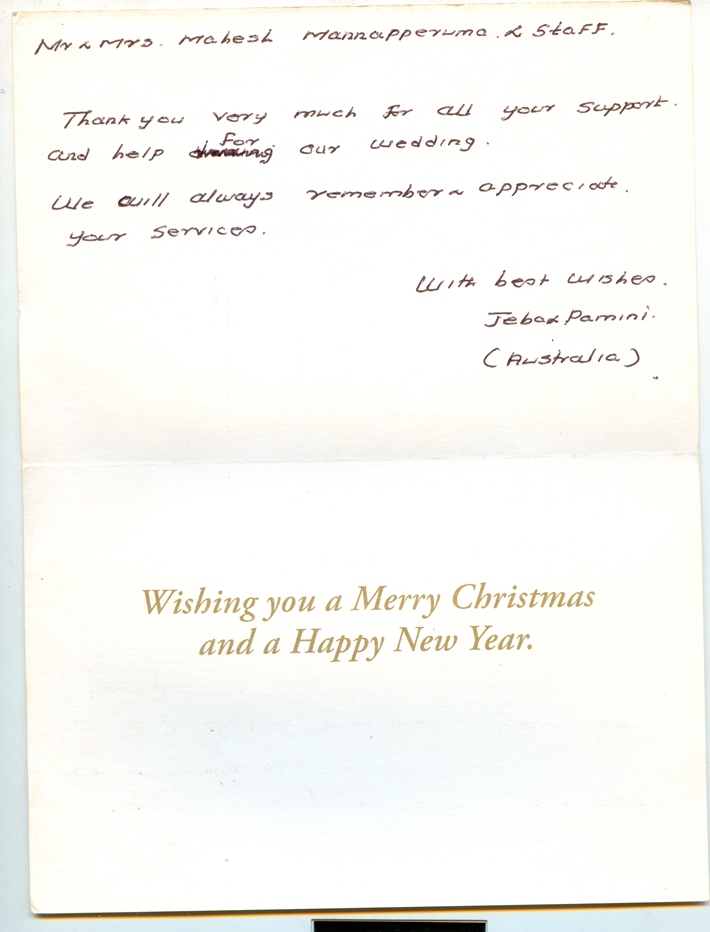 Mr & Mrs. Mahesh Mannapperuma. & Staff.
Thank you very much for all your support.
for
and help our wedding.
We will always remember & appreciate.
your services.
With best wishes.
Jeba & Pamini.
(Australia)
Wishing you a Merry Christmas
and a Happy New Year.